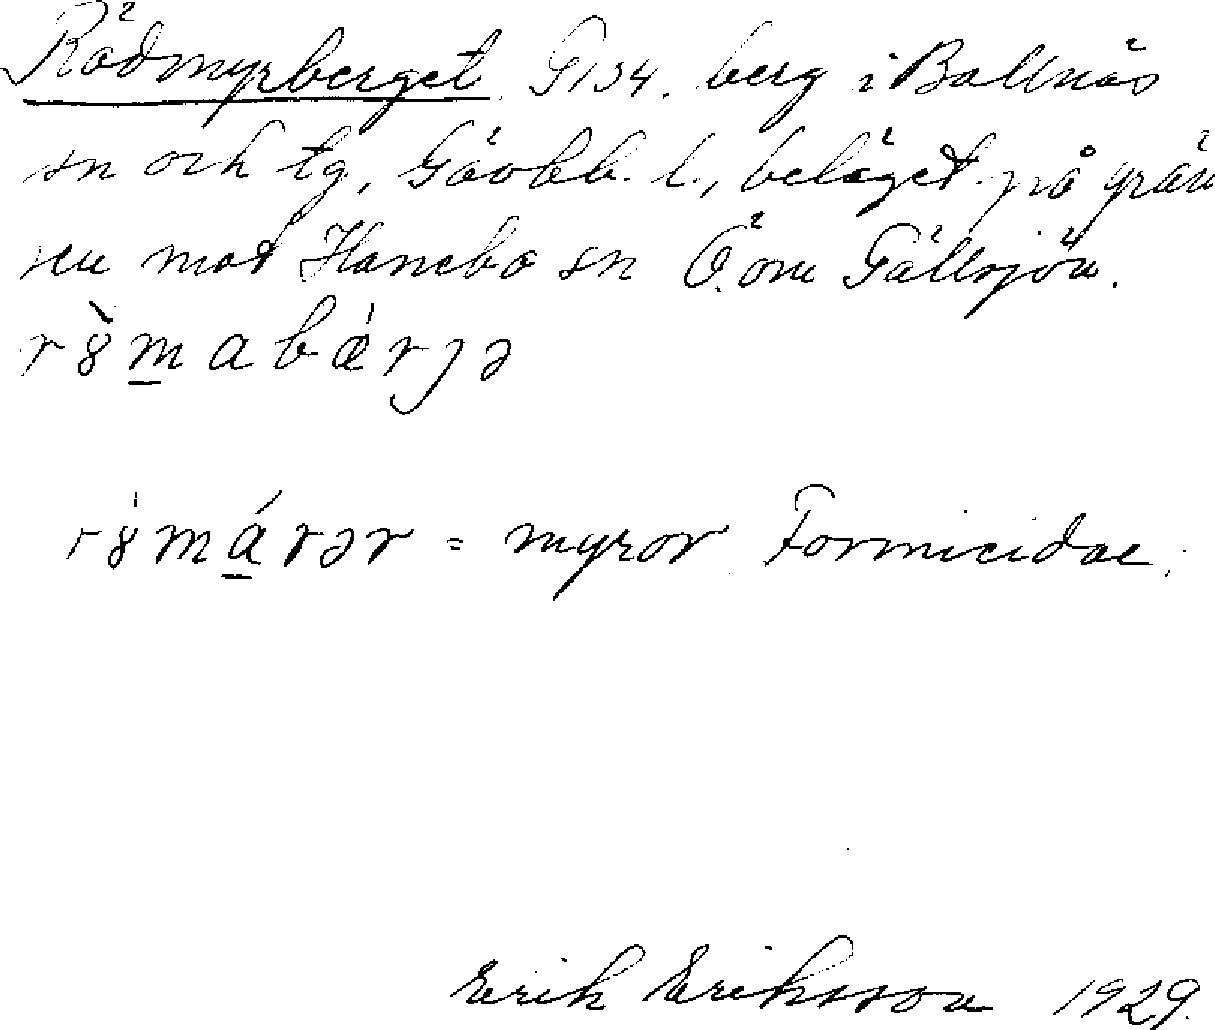 Rödmyrberget G134. berg i Bollnäs
sn och tg, Gävlb. l., beläget på grän
sen mot Hanebo sn Ö. om Gällsjön.
r8̀m̲abǽrȷə
r8̍má̲rər = myror Formicidae.
Erik Eriksson 1929.